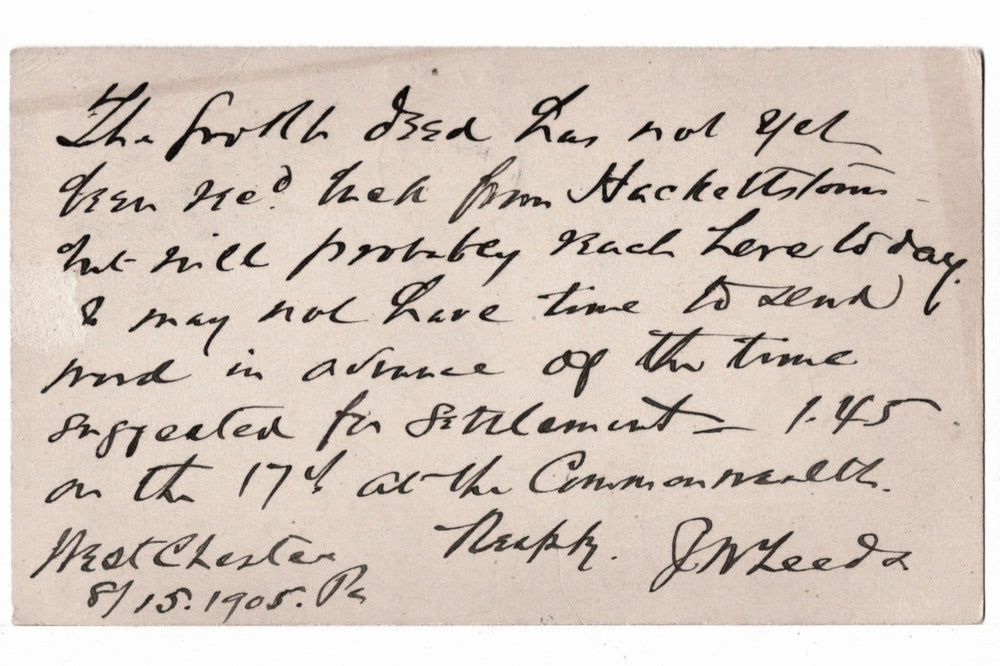 The fourth deed has not yet
been rec'd back from Hackettstown
but will probably reach here to day.
I may not have time to send
word in advance of the time
suggested for settlement – 1.45
on the 17th at the Commonwealth.
Respty. J W Leeds
West Chester
8/15.1905. Pa